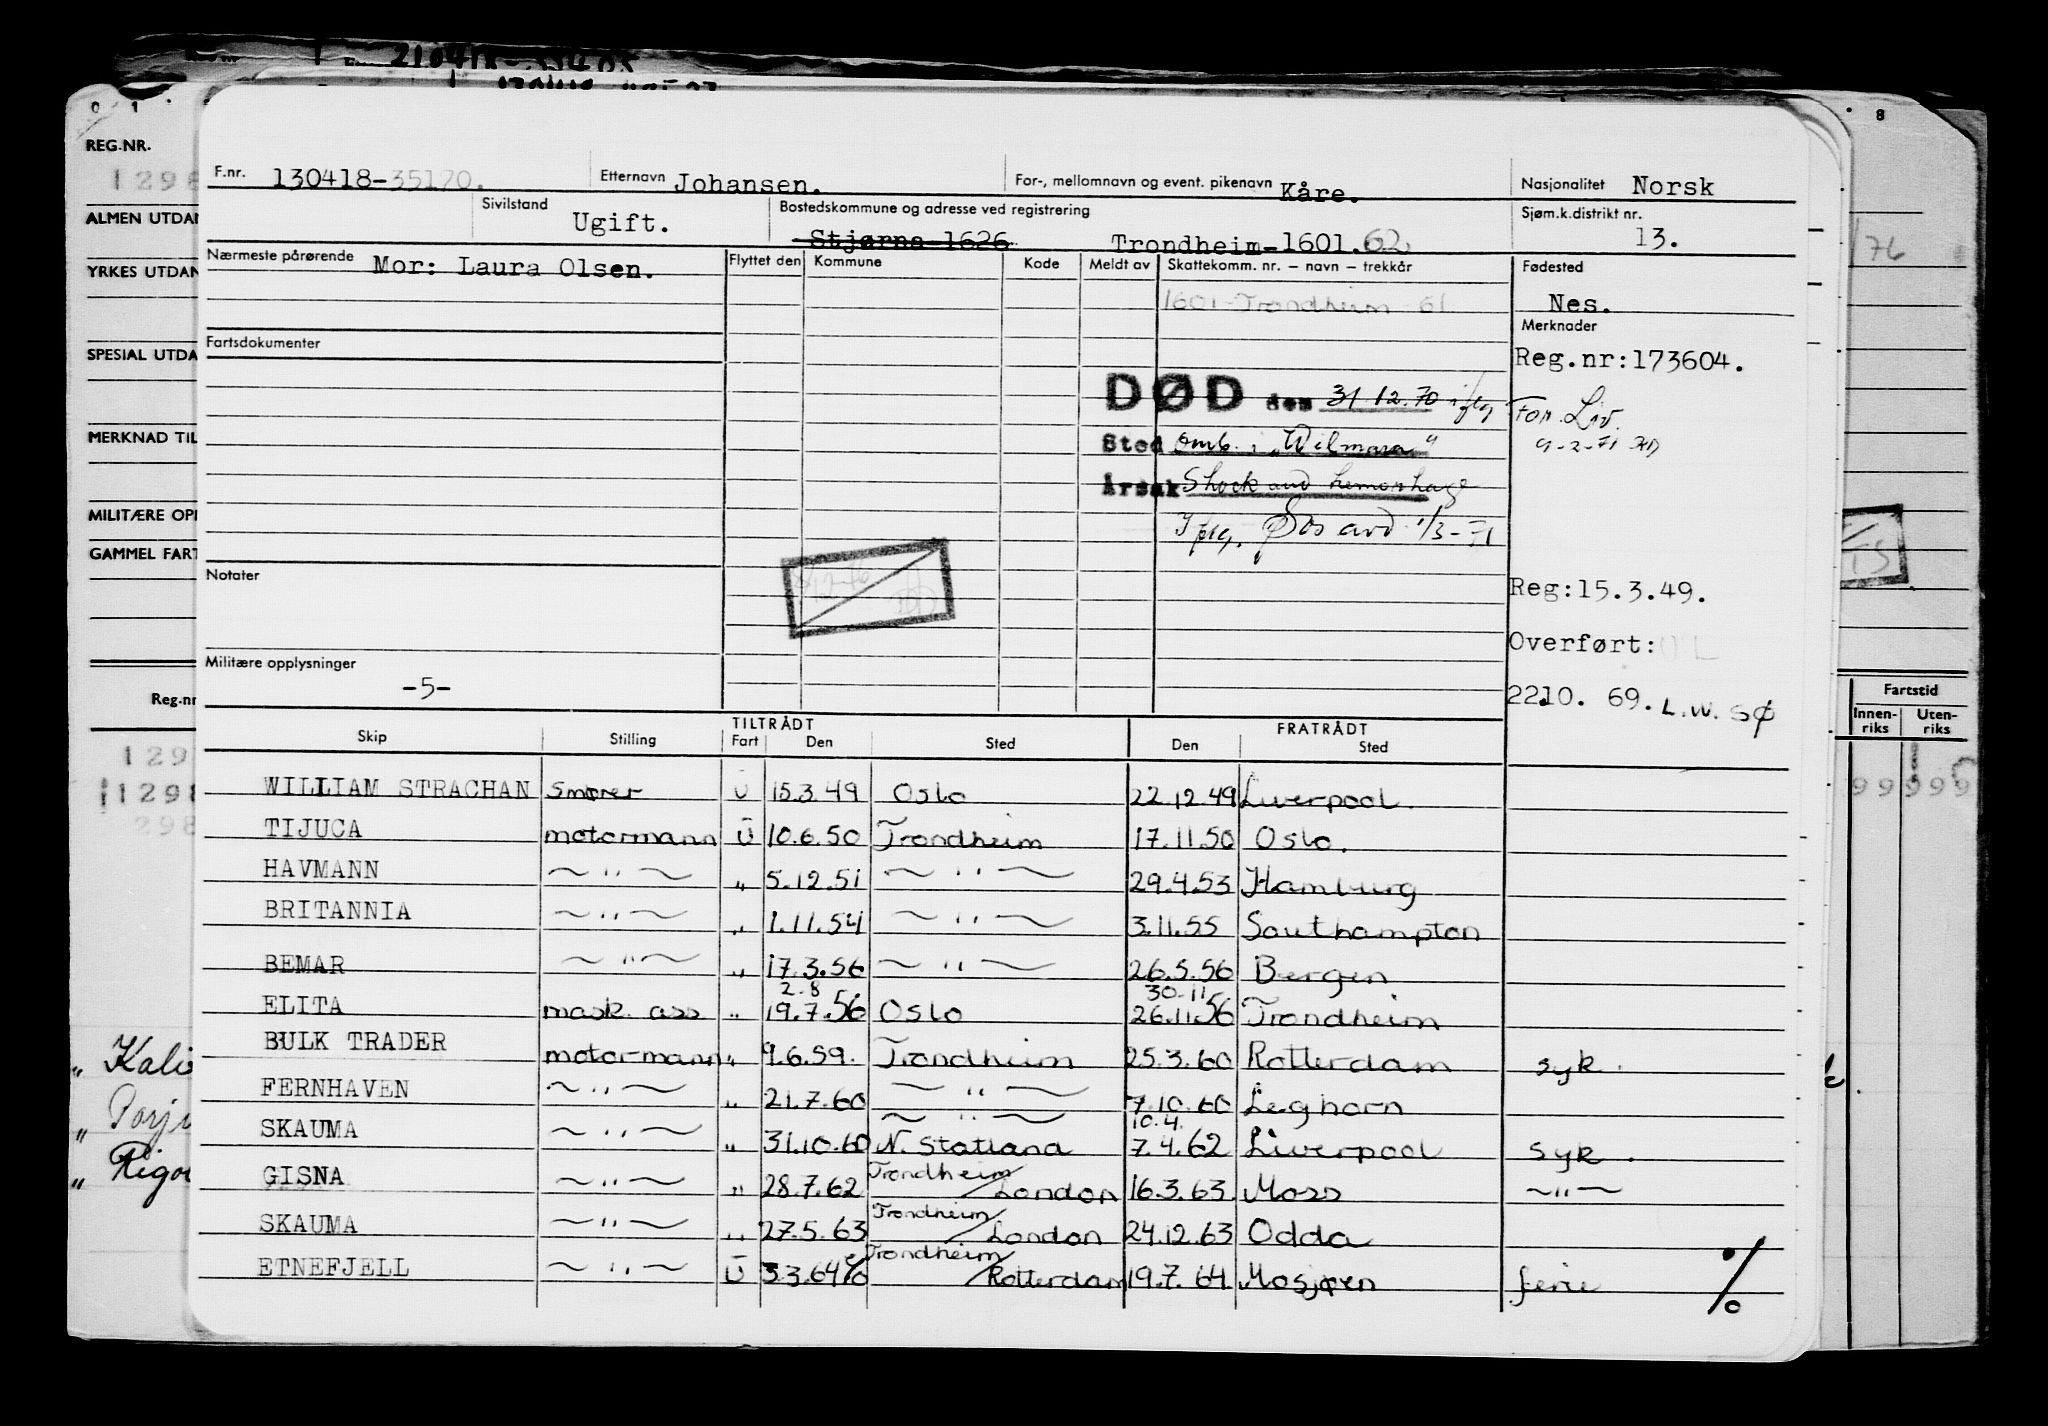 210418-33405
0 1 8
REG.NR.
1298
ALMEN UTDAN
YRKES UTDAN
SPESIAL UTDA
MERKNAD TIL
MILITÆRE OPP
GAMMEL FART
Reg.nr
129
1298
298
„ Kali
„ Torji
„ Rigo
/76
Fartstid
Innen-riks Uten-riks
F.nr. 130418-35120. Etternavn Johansen. For-, mellomnavn og event. pikenavn Kåre. Nasjonalitet Norsk
Sivilstand Ugift. Bostedskommune og adresse ved registrering Stjørna-1626 Trondheim-1601.62 Sjøm.k.distrikt nr. 13.
Nærmeste pårørende Mor: Laura Olsen. Flyttet den Kommune Kode Meldt av Skattekomm. nr. – navn – trekkår Fødested
1601-Trondheim 61 Nes.
Merknader
Fartsdokumenter Reg.nr:173604.
DØD den 31 12.70 iflg For. Liv.
9-2-71
Sted omb. i „Wilmara"
Årsak Shock and hemorrhage
Iflg. Øos avd 1/3-71
Notater
Reg:15.3.49.
Overført:
Militære opplysninger
-5-
2210. 69. L.W. SØ
TILTRÅDT FRATRÅDT
Skip Stilling Fart Den Sted Den Sted
WILLIAM STRACHAN Smører U 15.3.49 Oslo 22.12.49 Liverpool.
TIJUCA motormann U 10.6.50 Trondheim 17.11.50 Oslo.
HAVMANN ~ " ~ " 5.12.51 ~ " ~ 29.4.53 Hamburg
BRITANNIA ~ " ~ " 1.11.54 ~ " ~ 3.11.55 Southampton
BEMAR ~ " ~ " 17.3.56 ~ " ~ 26.5.56 Bergen
2.8 30-11
ELITA mask. ass " 19.7.56 Oslo 26.11.56 Trondheim
BULK TRADER motormann " 9.6.59. Trondheim 25.3.60 Rotterdam syk.
FERNHAVEN ~ " ~ " 21.7.60 ~ " ~ 7.10.60 Leghorn
~ " ~ 10.4.
SKAUMA ~ " ~ " 31.10.60 N. Statland 7.4.62 Liverpool syk.
GISNA ~ " ~ " 28.7.62 Trondheim/London 16.3.63. Moss ~ " ~
SKAUMA ~ " ~ " 27.5.63 Trondheim/London 24.12.63 Odda
ETNEFJELL ~ " ~ U 3.3.64 Trondheim/Rotterdam 19.7.64 Mosjøen ferie %